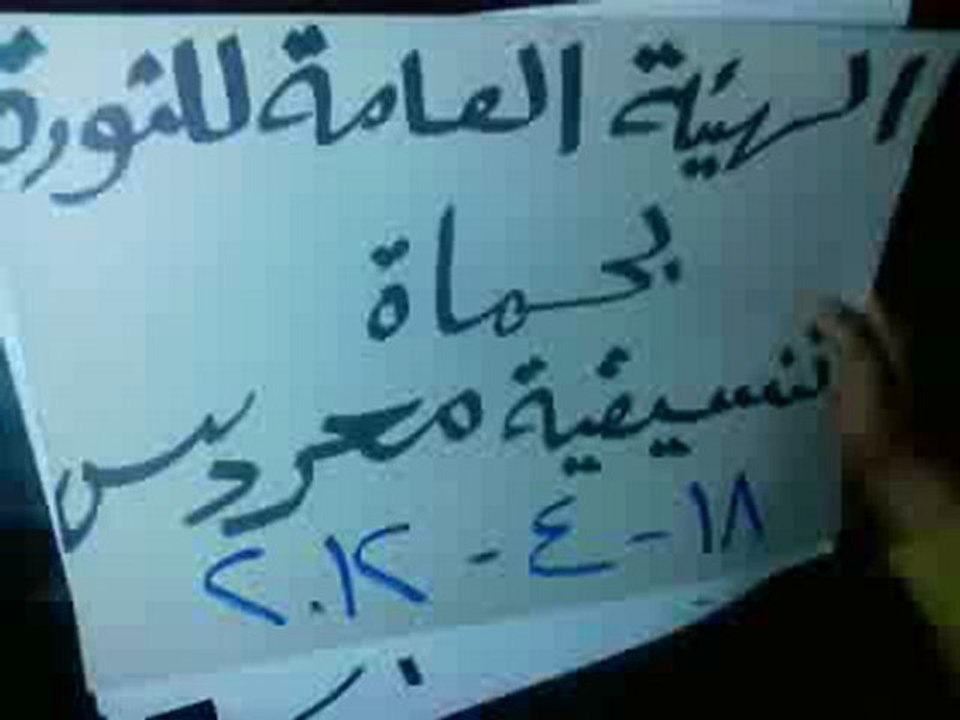 الهيئة العامة للثورة
بحماة
تنسيقية معردس
١٨-٤-٢٠١٢